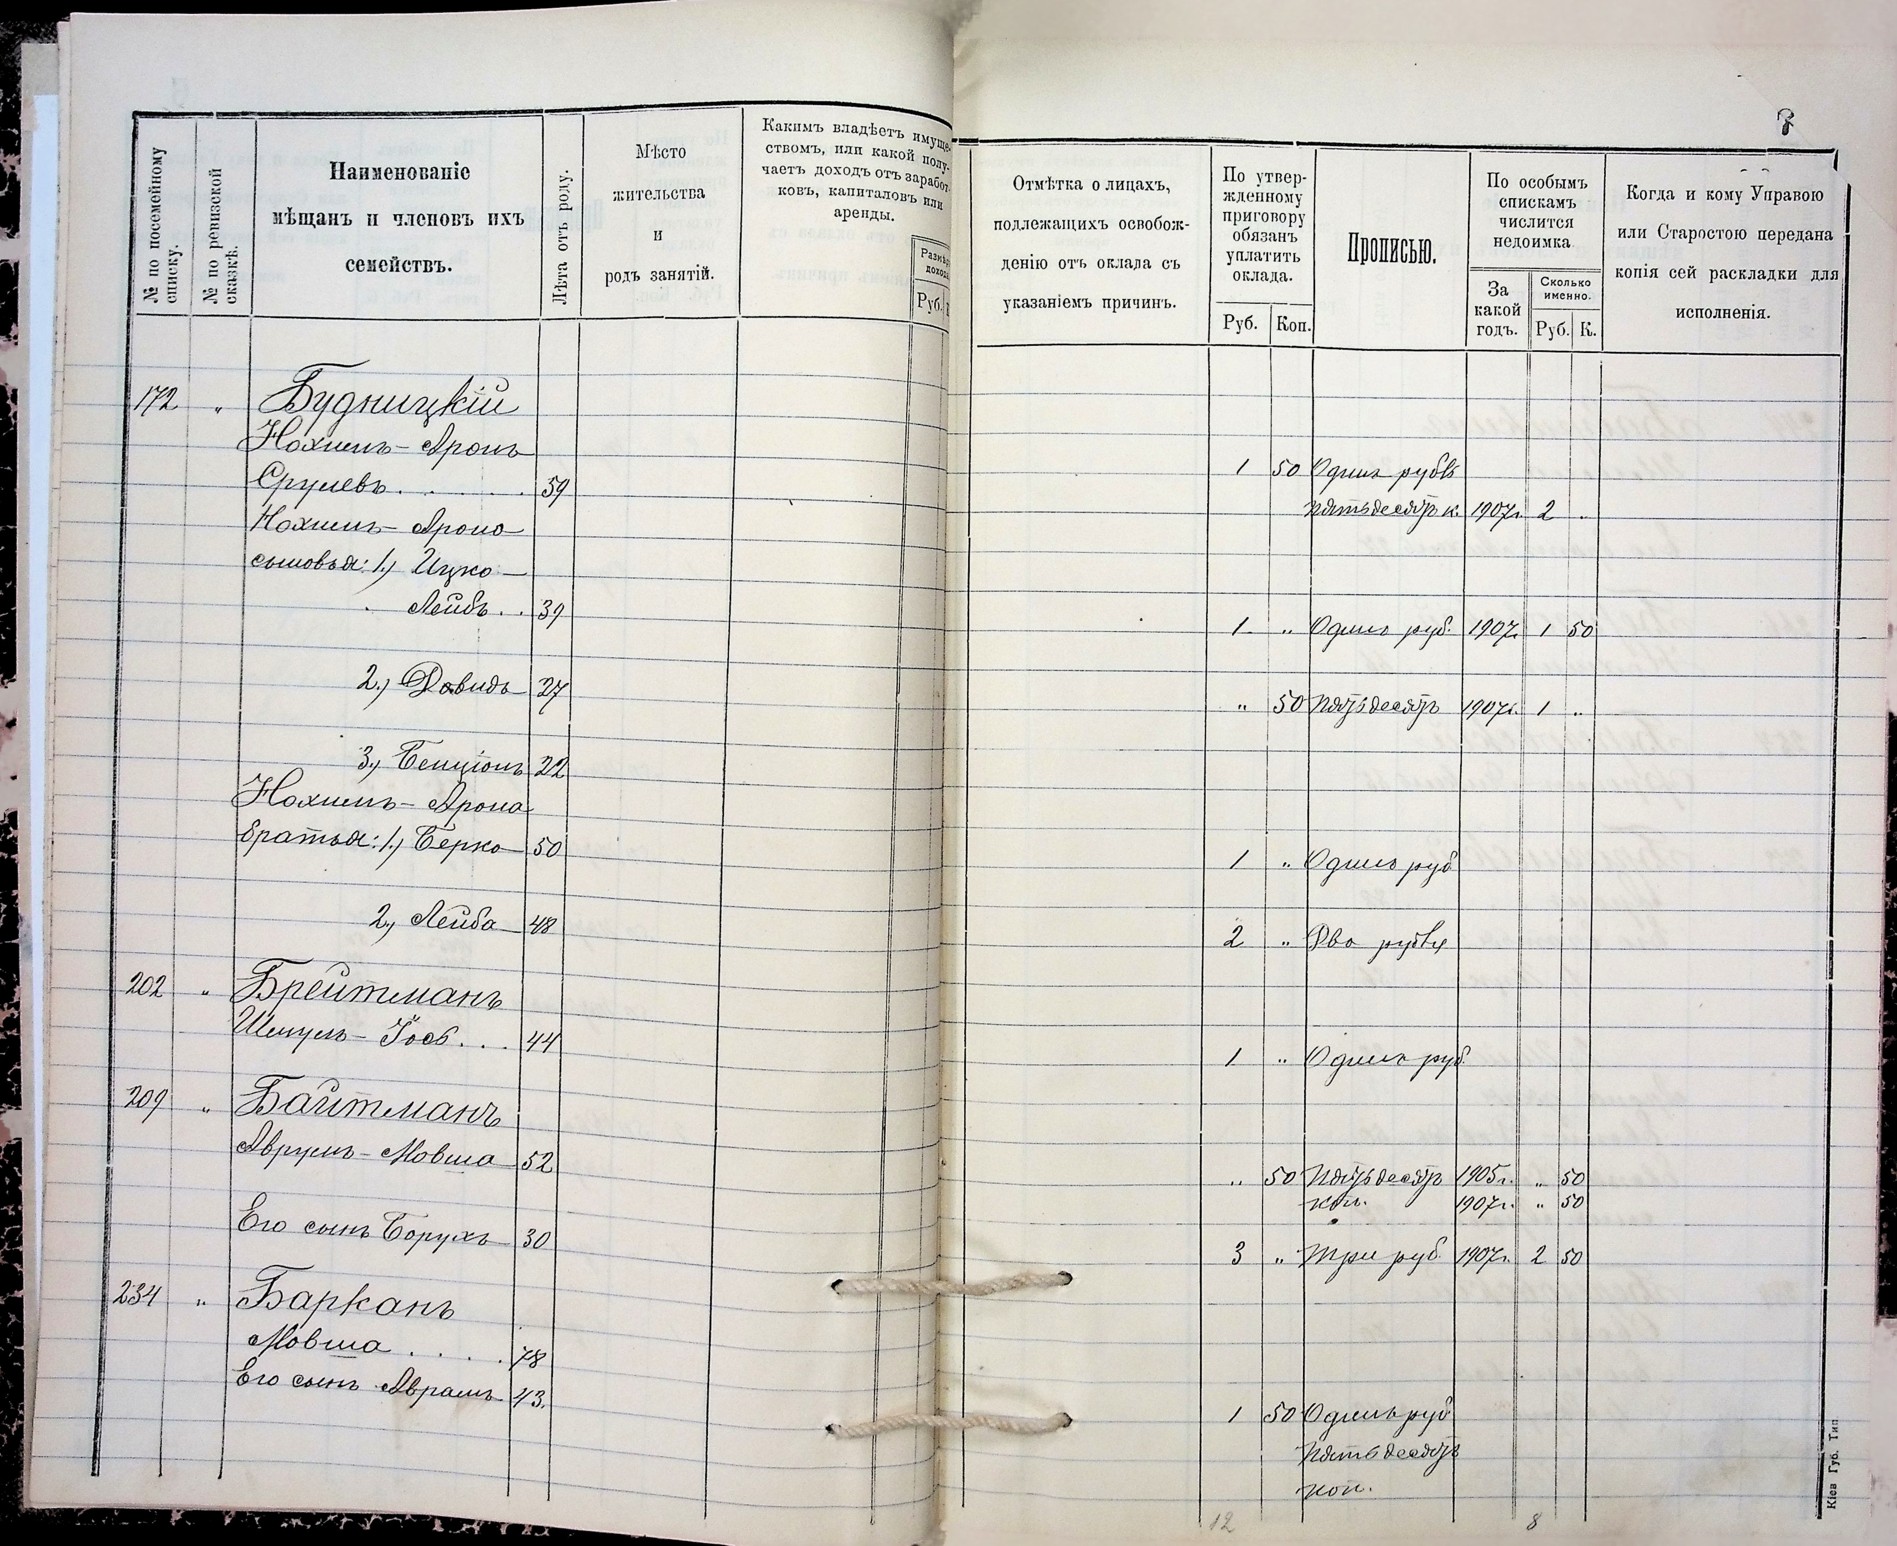 № по посемейному списку.
№ по ревизской сказкѣ.
Наименованіе
мѣщанъ и членовъ ихъ
семействъ.
Лѣта отъ роду.
Мѣсто
жительства
и
родъ занятій.
Какимъ владѣетъ имуще-
ствомъ, или какой полу-
чаетъ доходъ отъ заработ-
ковъ, капиталовъ или
аренды.
Размѣръ
дохода
Руб.
Отмѣтка о лицахъ,
подлежащихъ освобож-
денію отъ оклада съ
указаніемъ причинъ.
По утвер-
жденному
приговору
обязанъ
уплатить
оклада.
Руб. Коп.
Прописью.
По особымъ
спискамъ
числится
недоимка
За
какой
годъ.
Сколько
именно.
Руб. К.
Когда и кому Управою
или Старостою передана
копія сей раскладки для
исполненія.
172 " Будницкій
Нохимъ-Аронъ
Срулевъ . . . . . 59
1 50 Одинъ рубль
Нохимъ-Арона
пятьдесятъ к. 1907г. 2 "
сыновья: 1.) Ицко-
Лейбъ . . 39
1 " Одинъ руб. 1907г. 1 50
2.) Давидъ 27
" 50 Пятьдесятъ 1907г. 1 "
3.) Бенціонъ 22
Нохимъ-Арона
братья: 1.) Берко 50
1 " Одинъ руб
2.) Лейба 48
2 " Два рубля
202 " Брейтманъ
Шмуль-Іось . . . 44
1 " Одинъ руб.
209 " Байтманъ
Аврумъ-Мовша 52
" 50 Пятьдесятъ 1905г. " 50
коп. 1907г. " 50
Его сынъ Борухъ 30
3 " Три руб. 1907г. 2 50
234 " Барканъ
Мовша . . . . 78
Его сынъ Аврамъ 43.
1 50 Одинъ руб
пятьдесятъ
коп.
12 8
Кіев Губ. Тип.